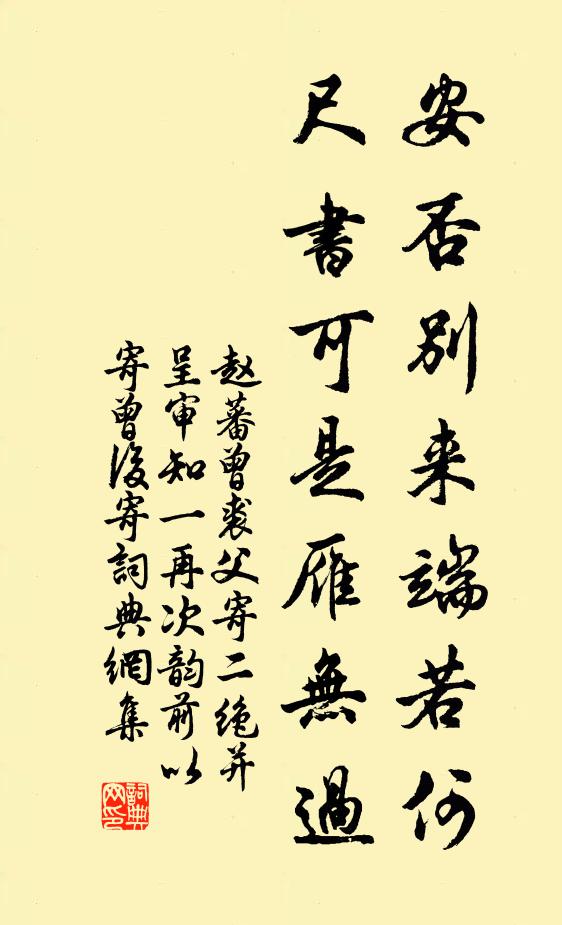 安否別来端若何
尺書可是雁無過
赵蕃曾裘父寄二绝并
呈审知一再次韵前以
寄曾後寄詞典網集
詞典
网印